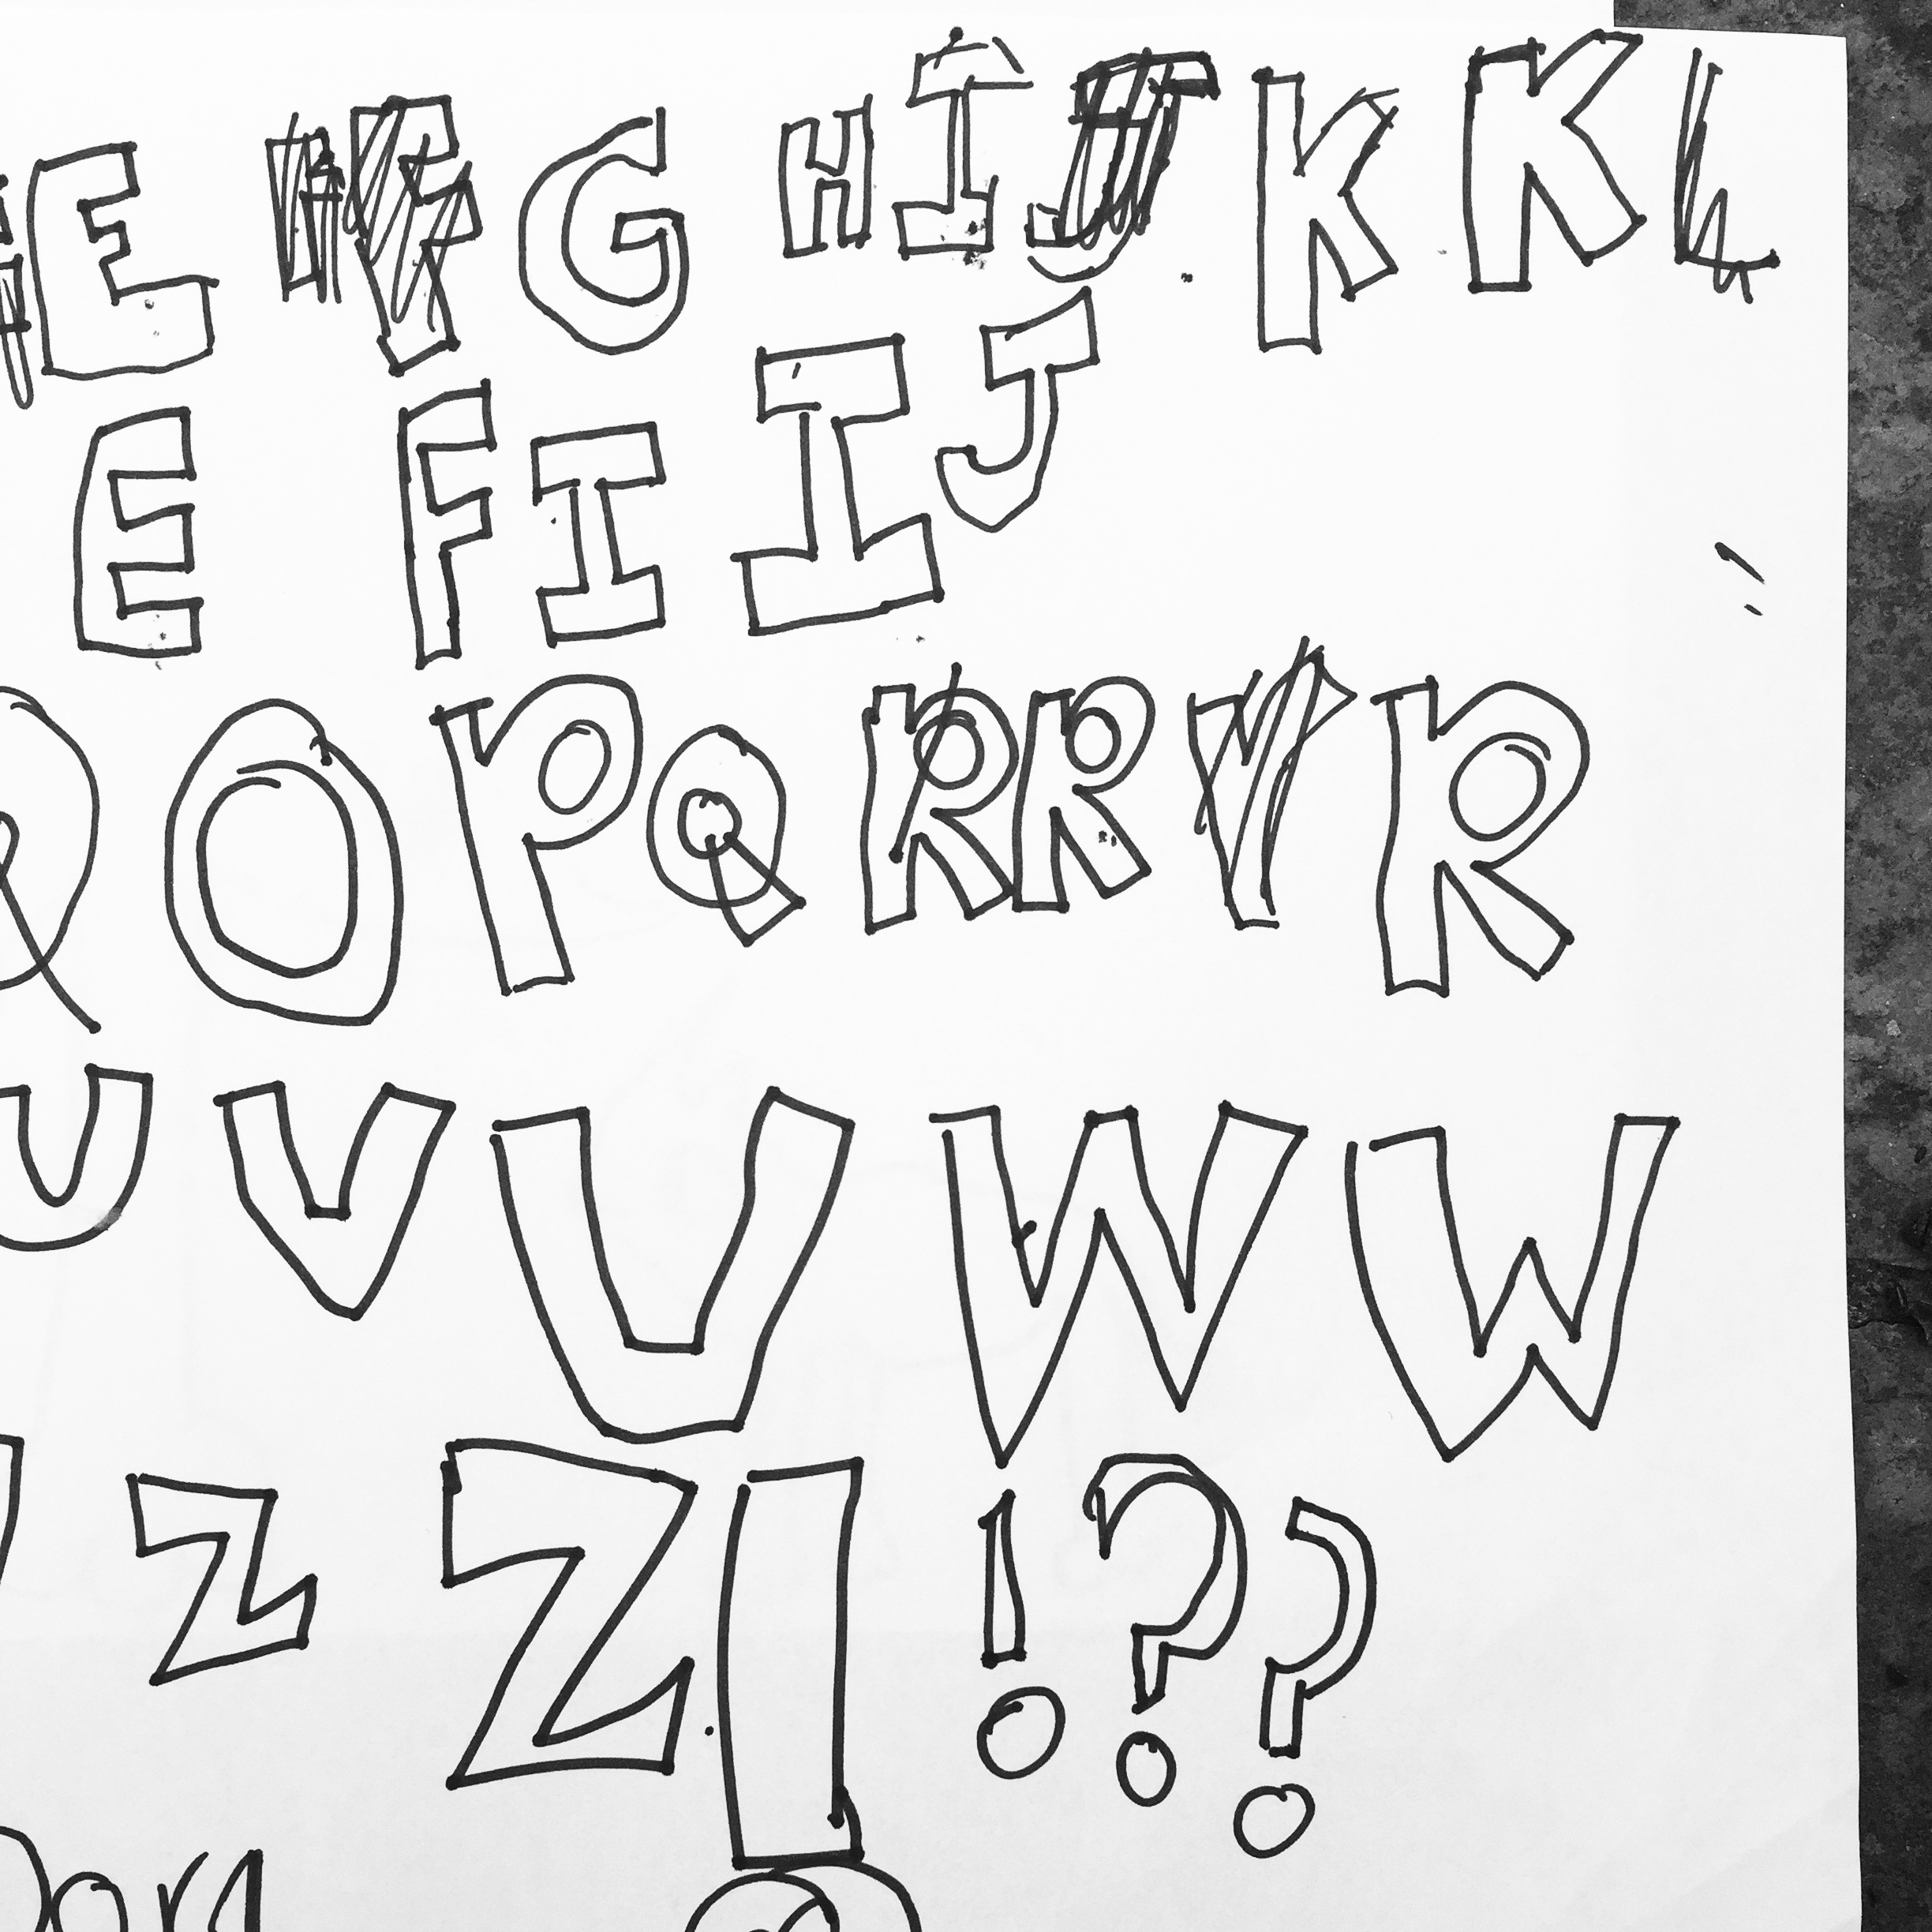 E G H I K K
E F I I J
O P Q R R R
U V U W W
Z Z ! ! ? ?